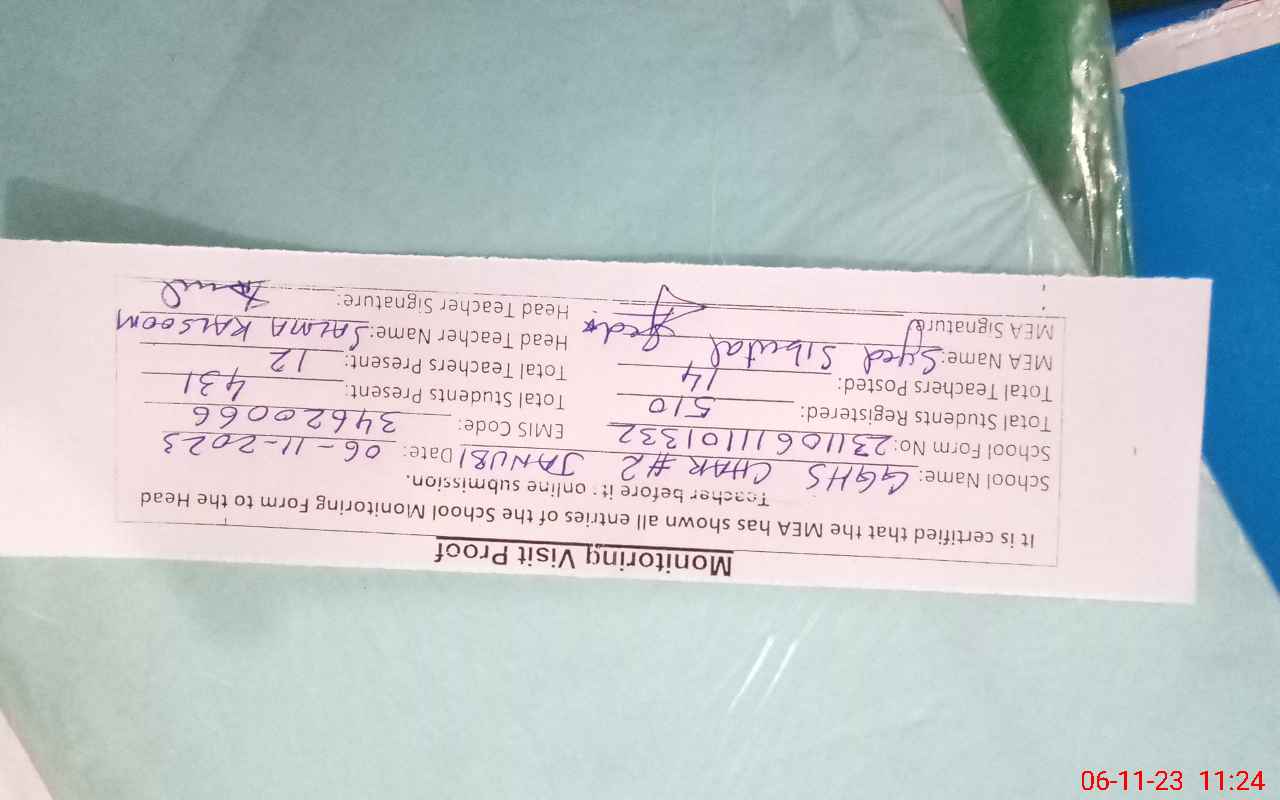 Monitoring Visit Proof
It is certified that the MEA has shown all entries of the School Monitoring Form to the Head
Teacher before it: online submission.
School Name: GGHS CHAK #2 JANUBI Date: 06-11-2023
School Form No: 23110611101332 EMIS Code: 34620066
Total Students Registered: 510 Total Students Present: 431
Total Teachers Posted: 14 Total Teachers Present: 12
MEA Name: Syed Head Teacher Name: SALMA KALSOOM
MEA Signature: Head Teacher Signature:
06-11-23 11:24